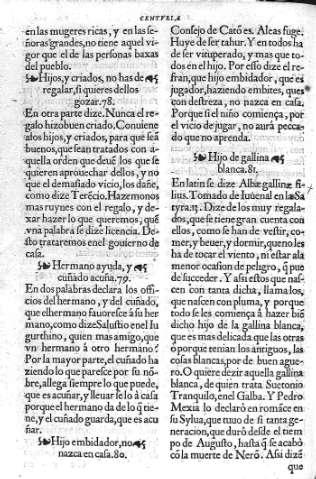 CENTVRIA
en las mugeres ricas, y en las se-
ñoras grandes, no tiene aquel vi-
gor que el de las personas baxas
del pueblo.
Hijos, y criados, no has de
regalar, si quieres dellos
gozar. 78.
En otra parte dize. Nunca el re-
galo hizo buen criado. Conuiene
a los hijos, y criados, para que sea
buenos, que sean tratados con a-
quella orden que deuē los que se
quieren aprouechar dellos, y no
que el demasiado vicio, los dañe,
como dize Terēcio. Hazemonos
mas ruynes con el regalo, y de-
xar hazer lo que queremos, que
vna palabra se dize licencia. De-
sto trataremos en el gouierno de
casa.
Hermano ayuda, y
cuñado acuña. 79.
En dos palabras declara los offi-
cios del hermano, y del cuñado,
que el hermano fauoresce a su her
mano, como dize Salustio en el Iu
gurthino, quien mas amigo, que
vn hermano a otro hermano?
Por la mayor parte, el cuñado ha
ziendo lo que paresce por su nō-
bre, allega siempre lo que puede,
que es acuñar, y lleuarse lo a casa
porque el hermano da de lo q̄ tie-
ne, y el cuñado guarda, que es acu
ñar.
Hijo embidador, no
nazca en casa. 80.
Consejo de Catō es. Aleas fuge.
Huye de ser tahur. Y en todos ha
de ser vituperado, y mas que to-
dos en el hijo. Por esso dize el re-
fran, que hijo embidador, que es
jugador, haziendo embites, ques
con destreza, no nazca en casa.
Porque si el niño comiença, por
el vicio de jugar, no aurá pecca-
do que no aprenda.
Hijo de gallina
blanca. 81.
En latin se dize Albæ gallinæ fi-
lius. Tomado de Iuuenal en la Sa
tyra. Dize de los muy regala-
dos, que se tiene gran cuenta con
ellos, como se han de vestir, co-
mer, y beuer, y dormir, que no les
ha de tocar el viento, ni estar a la
menor ocasion de peligro, q̄ pue
de succeder. Y assi estos que nas-
cen con tanta dicha, llamalos,
que nascen con pluma, y porque
todo se les comiença á hazer biē
dicho hijo de la gallina blanca,
que es mas delicada que las otras
o porque tenian los antiguos, las
cosas blancas, por de buen ague-
ro. O quiere dezir aquella gallina
blanca, de quien trata Suetonio
Tranquilo, en el Galba. Y Pedro
Mexia lo declaró en romāce en
su Sylua, que nuo de si tanta ge-
neracion, que duró desde el tiem
po de Augusto, hasta q̄ se acabó
cō la muerte de Nerō. Assi dizē
que